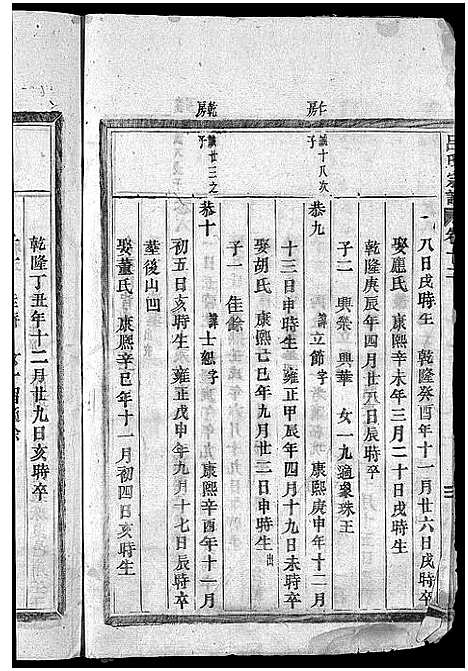 呂氏宗譜
卷十二
八日戌時生 乾隆癸酉年十一月廿六日戌時卒
娶應氏 康熙辛未年三月二十日戌時生
乾隆庚辰年四月廿八日辰時卒
子二 興業 興華 女一九適象珠王
仁房
誠十八次子
恭九 諱立節字 康熙庚申年十二月
十三日申時生 雍正甲辰年四月十九日未時卒
娶胡氏 康熙己巳年九月廿二日申時生 出
子一 佳餘
乾房
誠廿三之子
恭十 諱士紀字 康熙辛酉年十一月
初五日亥時生 雍正戊申年九月十七日辰時卒
塟後山凹
娶董氏 康熙辛巳年十一月初四日亥時生
乾隆丁丑年十二月廿九日亥時卒